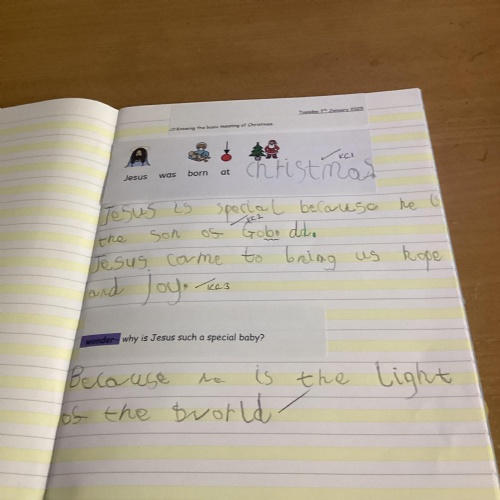 Tuesday 7th January 2025
LO Knowing the basic meaning of Christmas.
Jesus was born at christmas KC1
Jesus is special because he is
KC2
the son of Gob. dd.
Jesus came to bring us hope
and joy. KC3
wonder- why is Jesus such a special baby?
Because he is the light
of the world